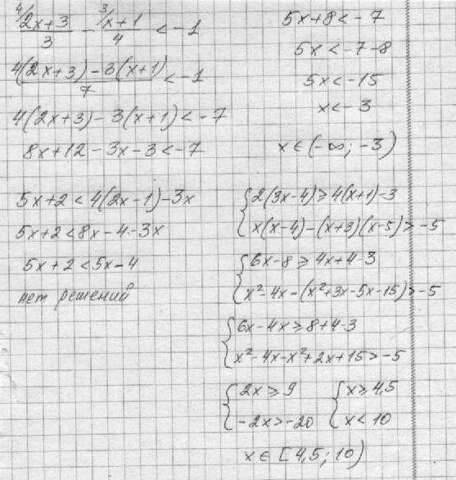 ⁴/ (2x+3)/3 - ³/ (x+1)/4 < -1
(4(2x+3) - 3(x+1))/7 < -1
4(2x+3) - 3(x+1) < -7
8x+12 - 3x - 3 < -7
5x+8 < -7
5x < -7-8
5x < -15
x < -3
x ∈ (-∞; -3)
5x+2 < 4(2x-1) - 3x
5x+2 < 8x - 4 - 3x
5x+2 < 5x - 4
нет решений
{ 2(3x-4) ≥ 4(x+1) - 3
x(x-4) - (x+3)(x-5) > -5
{ 6x-8 ≥ 4x+4-3
x²-4x-(x²+3x-5x-15) > -5
{ 6x-4x ≥ 8+4-3
x²-4x-x²+2x+15 > -5
{ 2x ≥ 9 { x ≥ 4,5
-2x > -20 x < 10
x ∈ [4,5; 10)